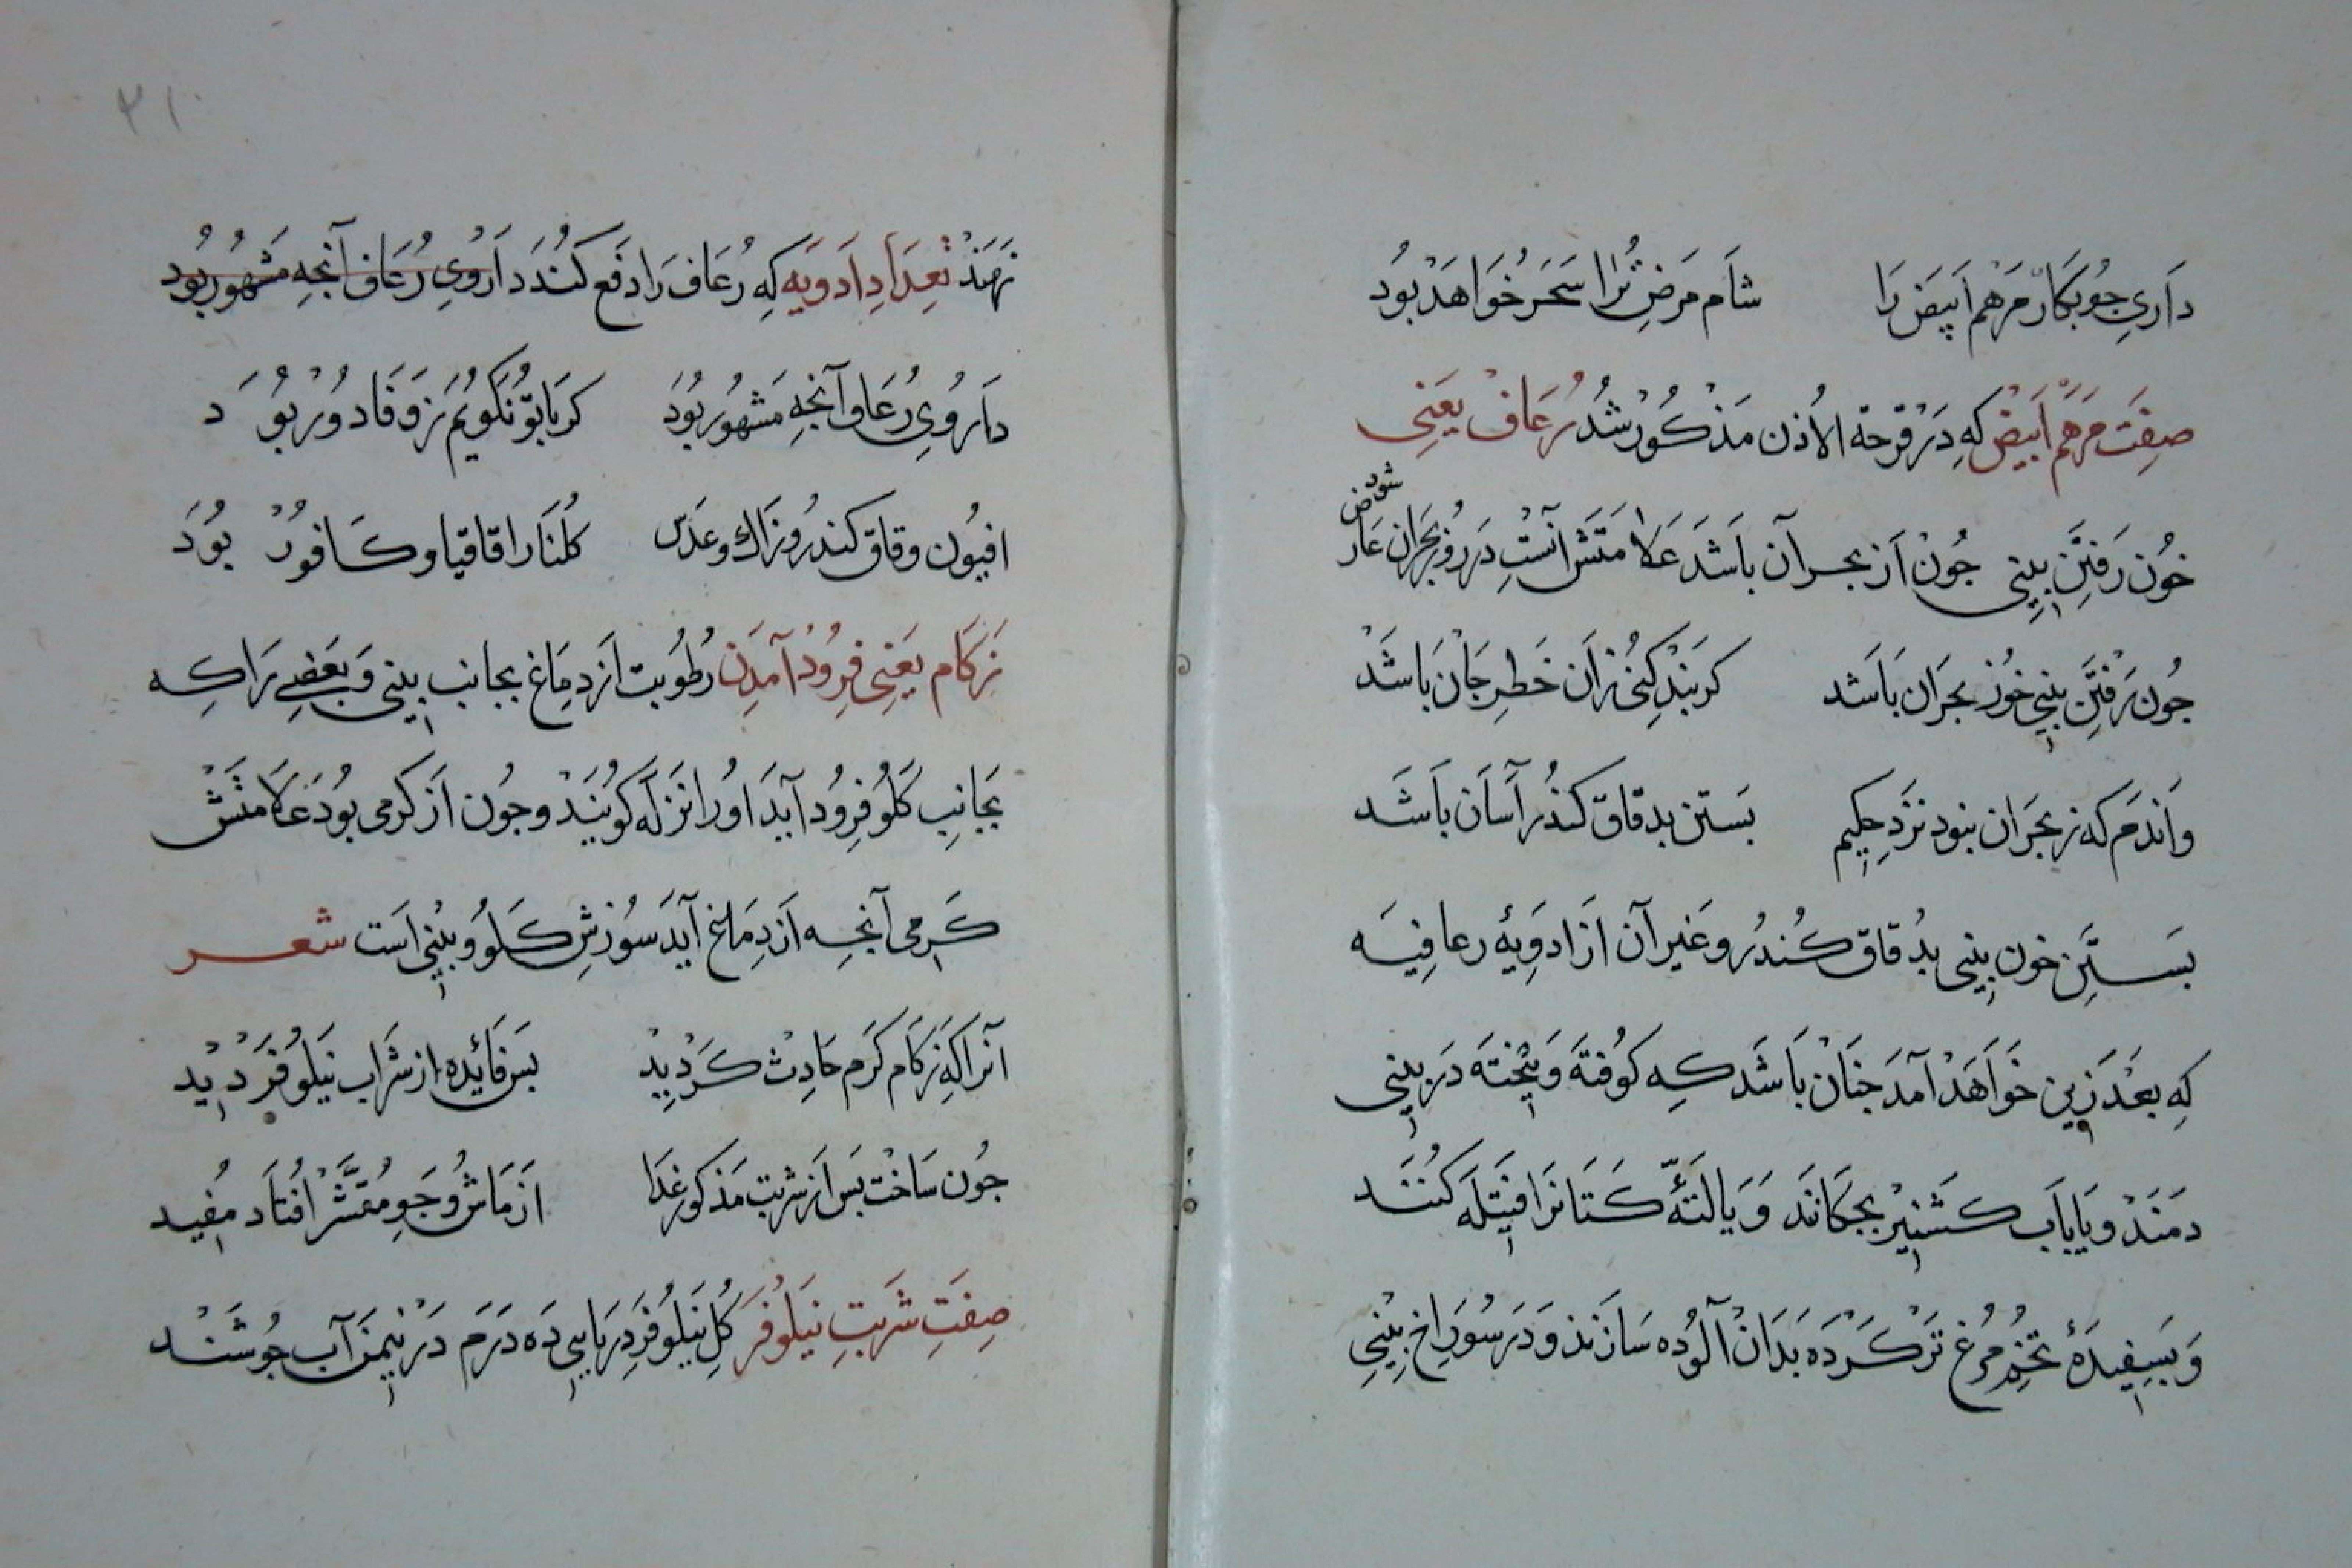 دَارِي جُو بَكَارْ مَرْهَم اَبيَض رَا شَام مَرَضِ تُرا سَحَر خُوَاهَدْ بُود
صِفَتِ مَرْهَم اَبْيَضْ كِه دَرْ قرحة الاُذن مَذْكُورْ شُدْ رُعَافْ يَعْنِي
خُون رَفتَنِ بينِي جُونْ اَز بحران بَاشَدْ عَلَامَتَشْ آنَسْتِ دَر روُز بحران عَارِض شود
جُون رَفْتَنِ بِينِي خُونْ بحرَان بَاشَد كر بَنْد كُنِي زاَن خَطرِ جَان بَاشَدْ
واَندَم كه ز بحرَان نبود نزَدِ حكيم بَستن بدقاق كندُر آسَان بَاشَد
بَستَنِ خون بينى بدُقاق كُندُر و غَير آن از ادوِيَهٔ رعافِيَه
كِه بَعْدَ زين خَواَهَدْ آمَدَ جنَانْ بَاشَد كه كوُفتَه وَ بيخته دَر بينِي
دمَنَدْ وَيَا بَابِ كَشْنِيزْ بجكَانَند وَ يَا لتَّهٔ كتَانرَا فتيلَه كُنَند
وَ بَسفِيدَهٔ تخمِ مُرغ تَر كَرْدَه بَداَنْ آلوُده سَازَند وَ دَر سُورَاخ بِينِي
٣١٠
نَهَنْدْ تَعِدَادِ اَدوَيه كِه رُعَاف رَا دَفع كُنَد دَاروُيِ رُعَاف آنجِه مَشهُور بُود
دَاروُيِ رُعَاف آنجِه مَشهُور بُودَ كر بَا تو نَكويُم زِ وَفَا دوُر بُوَد
افيُون و قاق كندرُ و زَاك و عَدَس كُلنَار اقاقيا و كَافُورْ بُوَدَ
زُكَام يَعنِي فِرُودْ آمَدَن رُطُوبت اَز دِمَاغ بجانب بينى وَ بَعَضى رَا كه
بَجَانِبِ كَلُو فِرُود آيَد اوُرا نَزلَه كوُيَنَدْ و جُون اَز كرمى بُودَ عَلَامَتَشْ
كَرمى آنجِه اَز دِمَاغ آيَد سوُزِشِ كَلوُ وَ بيني اَست شعر
آنرا كِه زُكَام كَرم حَادِثْ كَردِيدْ بَس فَائِده از شَرَاب نيَلوُفَر دِيد
جُون سَاخت بَس اَز شربت مَذكور غذَا اَز مَاش و جَوِ مُقَشَّر افُتَاد مُفِيد
صِفَتِ شَربَتِ نِيلُوفَر كُلِ نيَلُوفَر دريَايي دَه دَرَم دَرْ نيمَن آب جُوشَنْد